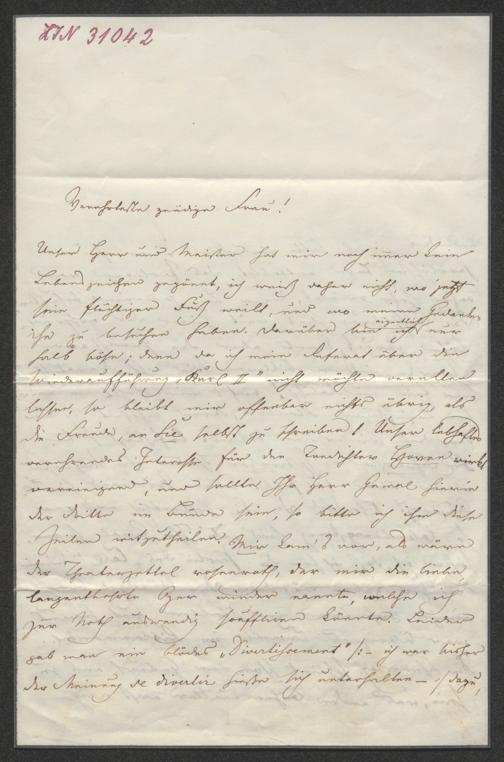 LIN 31042
Verehrteste gnädige Frau!
Unser Herr und Meister hat mir noch immer kein
Lebenszeichen gegönnt, ich weiß daher nicht, wo jetzt
sein flüchtiger Fuß weilt, und wo meine Gedanken
ihn zu besuchen haben. Darüber bin ich eigentlich nur
halb böse; denn da ich mein Referat über die
Wiederaufführung „Karl II" nicht möchte veralten
lassen, so bleibt mir offenbar nichts übrig als
die Freude, an Sie selbst zu schreiben! Unser
verehrendes Interesse für den Tondichter Hoven wirkt
vereinigend, und sollte Ihr Herr Gemal hierin
der Dritte im Bunde sein, so bitte ich ihm diese
Zeilen mitzutheilen. Mir kam's vor, als wäre
der Theaterzettel rosenroth, der mir die liebe,
langentbehrte Oper wieder nannte, welche ich
zur Noth auswendig souffliren könnte. Leider
gab man ein blödes „Divertissement" /:– ich war bisher
der Meinung se divertir hieße sich unterhalten – :/ dazu,